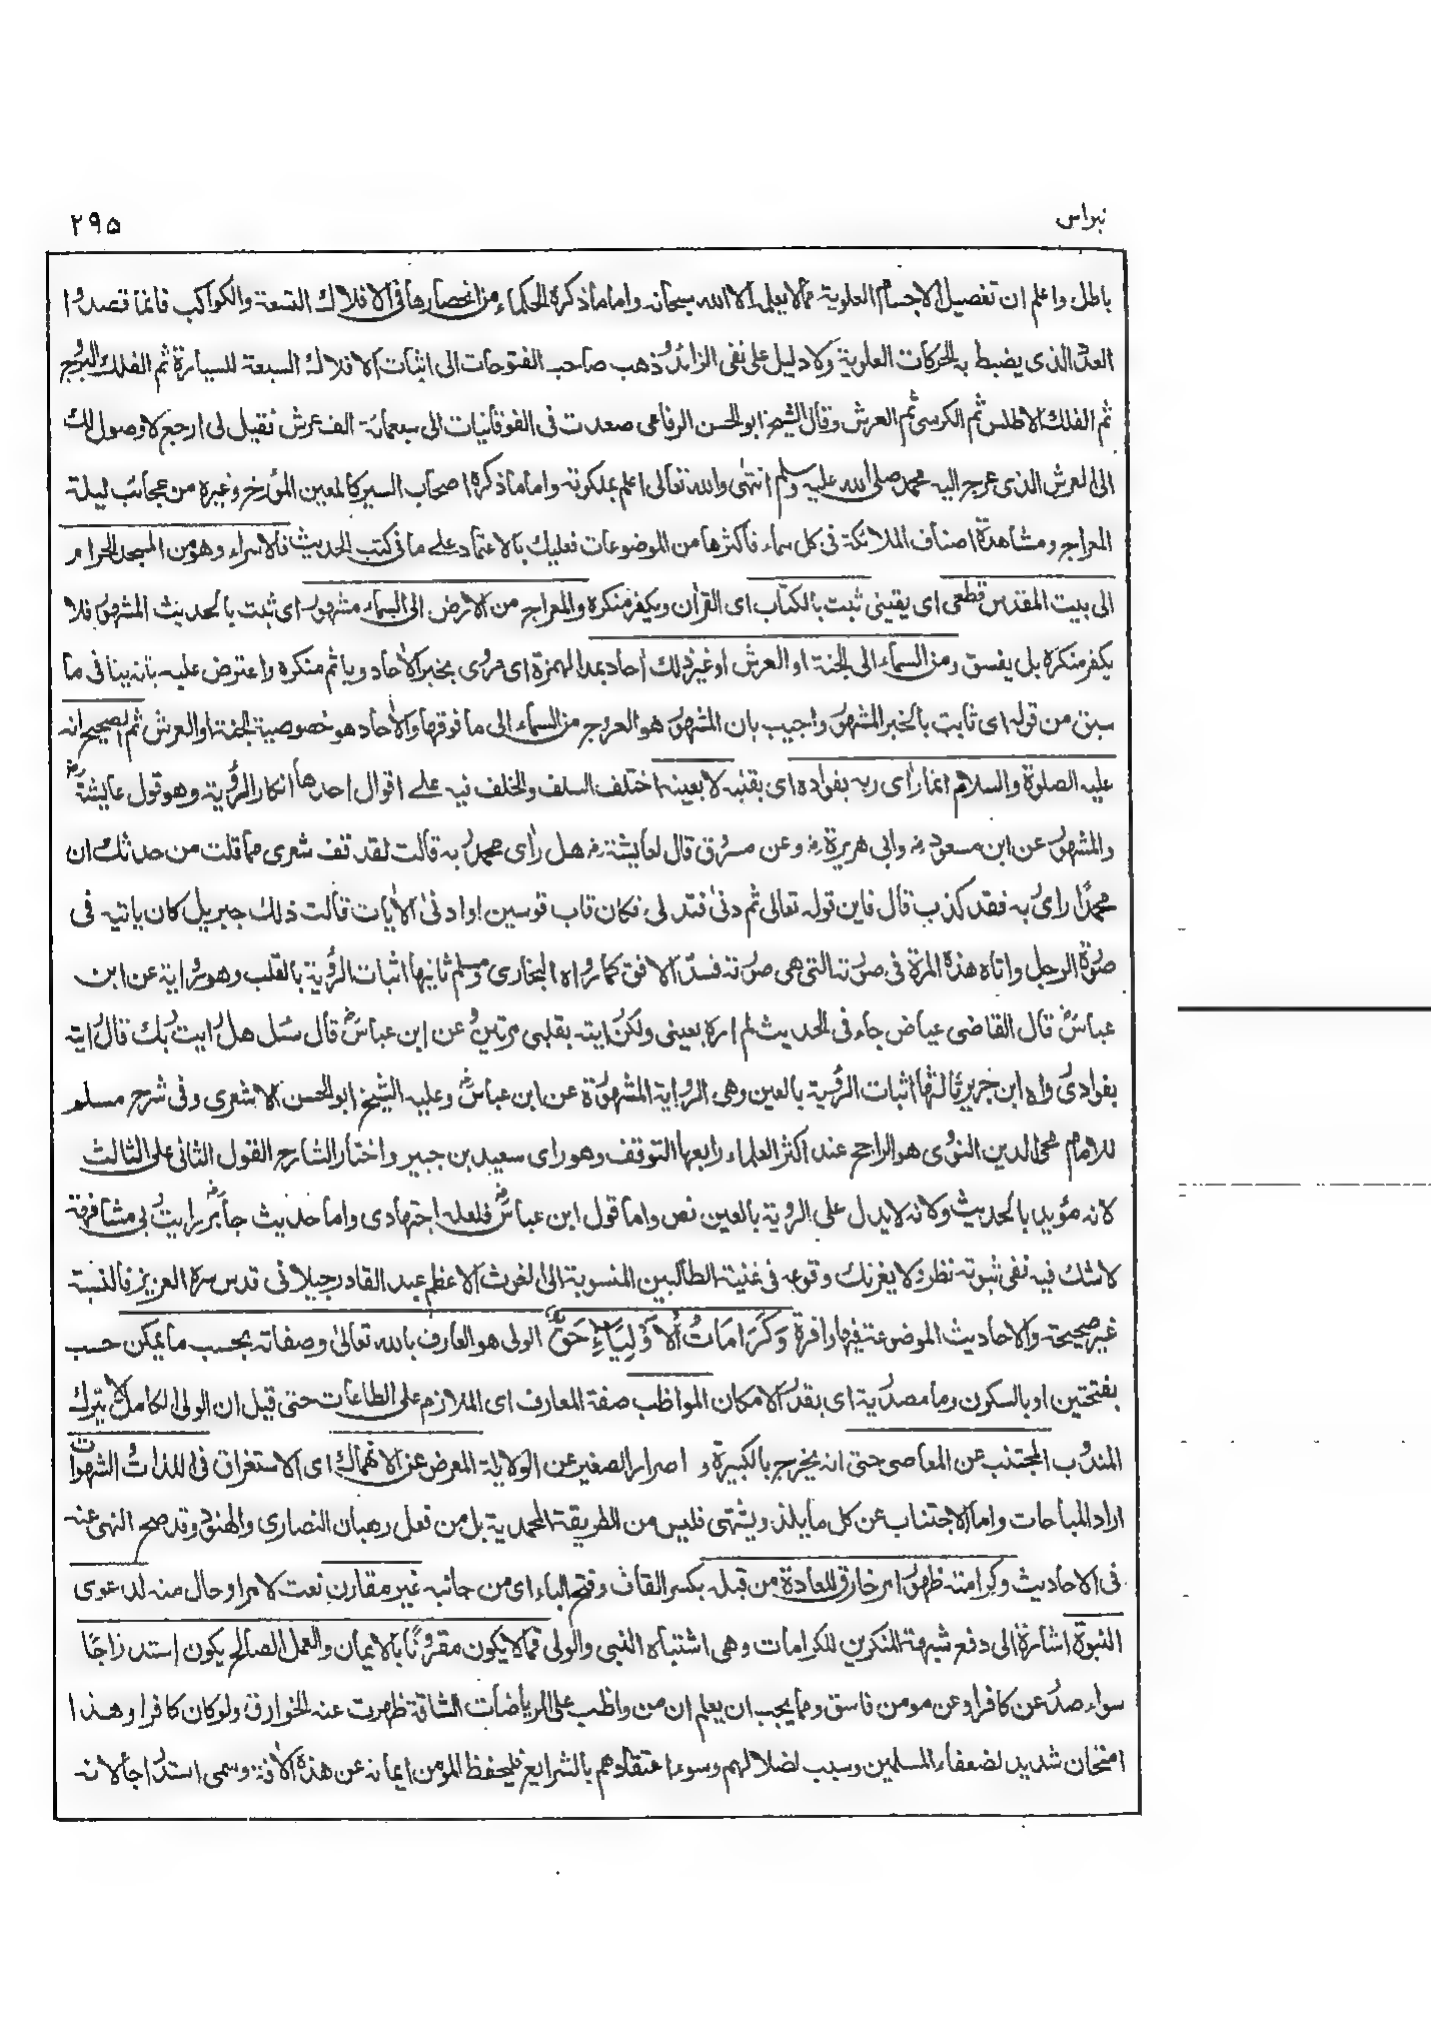 نبراس
٢٩٥
باطل واعلم ان تفصيل الاجسام العلوية مما لا يعلمه الا الله سبحانه واما ما ذكره الحكماء من انحصارها فى الافلاك التسعة والكواكب فانما قصدوا
العدد الذى يضبط به الحركات العلوية ولا دليل على نفى الزائد وذهب صاحب الفتوحات الى اثبات الافلاك السبعة للسيارة ثم الفلك البروج
ثم الفلك الاطلس ثم الكرسى ثم العرش وقال الشيخ ابو الحسن الرفاعى صعدت فى الفوقانيات الى سبعمائة الف عرش فقيل لى ارجع لا وصول لك
الى العرش الذى عرج اليه محمد صلى الله عليه وسلم انتهى والله تعالى اعلم بملكوته واما ما ذكره اصحاب السير كالمعين المؤرخ وغيره من عجائب ليلة
المعراج ومشاهدة اصناف الملائكة فى كل سماء فاكثرها من الموضوعات فعليك بالاعتماد على ما فى كتب الحديث فالاسراء وهو من المسجد الحرام
الى بيت المقدس قطعى اى يقينى ثبت بالكتاب اى القرأن ويكفر منكره والمعراج من الارض الى السماء مشهور اى ثبت بالحديث المشهور فلا
يكفر منكره بل يفسق ومن السماء الى الجنة او العرش او غير ذلك احاد بمد الهمزة اى مروى بخبر الأحاد وياثم منكره واعترض عليه بانه ينافى ما
سبق من قوله اى ثابت بالخبر المشهور واجيب بان المشهور هو العروج من السماء الى ما فوقها والأحاد هو خصوصية الجنة او العرش ثم الصحيح انه
عليه الصلوة والسلام انما رأى ربه بفواده اى بقلبه لا بعينه اختلف السلف والخلف فيه على اقوال احدها انكار الرؤية وهو قول عايشة رض
والمشهور عن ابن مسعود رض وابى هريرة رض وعن مسروق قال لعايشة رض هل رأى محمد ربه قالت لقد قف شعرى مما قلت من حدثك ان
محمدا رأى ربه فقد كذب قال فاين قوله تعالى ثم دنى فتدلى فكان قاب قوسين او ادنى الأيات قالت ذلك جبريل كان ياتيه فى
صورة الرجل واتاه هذه المرة فى صورته التى هى صورته فسد الافق كما رواه البخارى ومسلم ثانيها اثبات الرؤية بالقلب وهو رواية عن ابن
عباس رض قال القاضى عياض جاء فى الحديث لم اره بعينى ولكن رايته بقلبى مرتين وعن ابن عباس رض قال سئل هل رايت ربك قال رايته
بفوادى رواه ابن جرير ثالثها اثبات الرؤية بالعين وهى الرواية المشهورة عن ابن عباس رض وعليه الشيخ ابو الحسن الاشعرى وفى شرح مسلم
للامام محى الدين النووى هو الراجح عند اكثر العلماء رابعها التوقف وهو راى سعيد بن جبير واختار الشارح القول الثانى على الثالث
لانه مؤيد بالحديث ولانه لا يدل على الروية بالعين نص واما قول ابن عباس رض فلعله اجتهادى واما حديث جابر رض رايت ربى مشافهة
لا شك فيه نفى ثبوته نظر ولا يغرنك وقوعه فى غنية الطالبين المنسوبة الى الغوث الاعظم عبد القادر جيلانى قدس سره العزيز فالنسبة
غير صحيحة والاحاديث الموضوعة فيها وافرة وَكَرَامَاتُ الأَوْلِيَاءِ حَقٌّ الولى هو العارف بالله تعالى وصفاته بحسب ما يمكن حسب
بفتحتين او بالسكون وما مصدرية اى بقدر الامكان المواظب صفة العارف اى الملازم على الطاعات حتى قيل ان الولى الكامل لا يترك
المندوب المجتنب عن المعاصى حتى انه يخرج بالكبيرة و اصرار الصغير عن الولاية المعرض عن الانهماك اى الاستغراق فى اللذات الشهوات
اراد المباحات واما الاجتناب عن كل ما يلذ ويشتهى فليس من الطريقة المحمدية بل من فعل رهبان النصارى والهنود وقد صح النهى عنه
فى الاحاديث وكرامته ظهور امر خارق للعادة من قبله بكسر القاف وفتح الباء اى من جانبه غير مقارن نعت لامر او حال منه لدعوى
النبوة اشارة الى دفع شبهة المنكرين للكرامات وهى اشتباه النبى والولى فما لا يكون مقرونا بالايمان والعمل الصالح يكون استدراجا
سواء صدر عن كافر او عن مومن فاسق ومما يجب ان يعلم ان من واظب على الرياضات الشاقة ظهرت عنه الخوارق ولو كان كافرا وهذا
امتحان شديد لضعفاء المسلمين وسبب لضلالهم وسوء اعتقادهم بالشرايع فليحفظ المومن ايمانه عن هذه الأفة وسمى استدراجا لانه